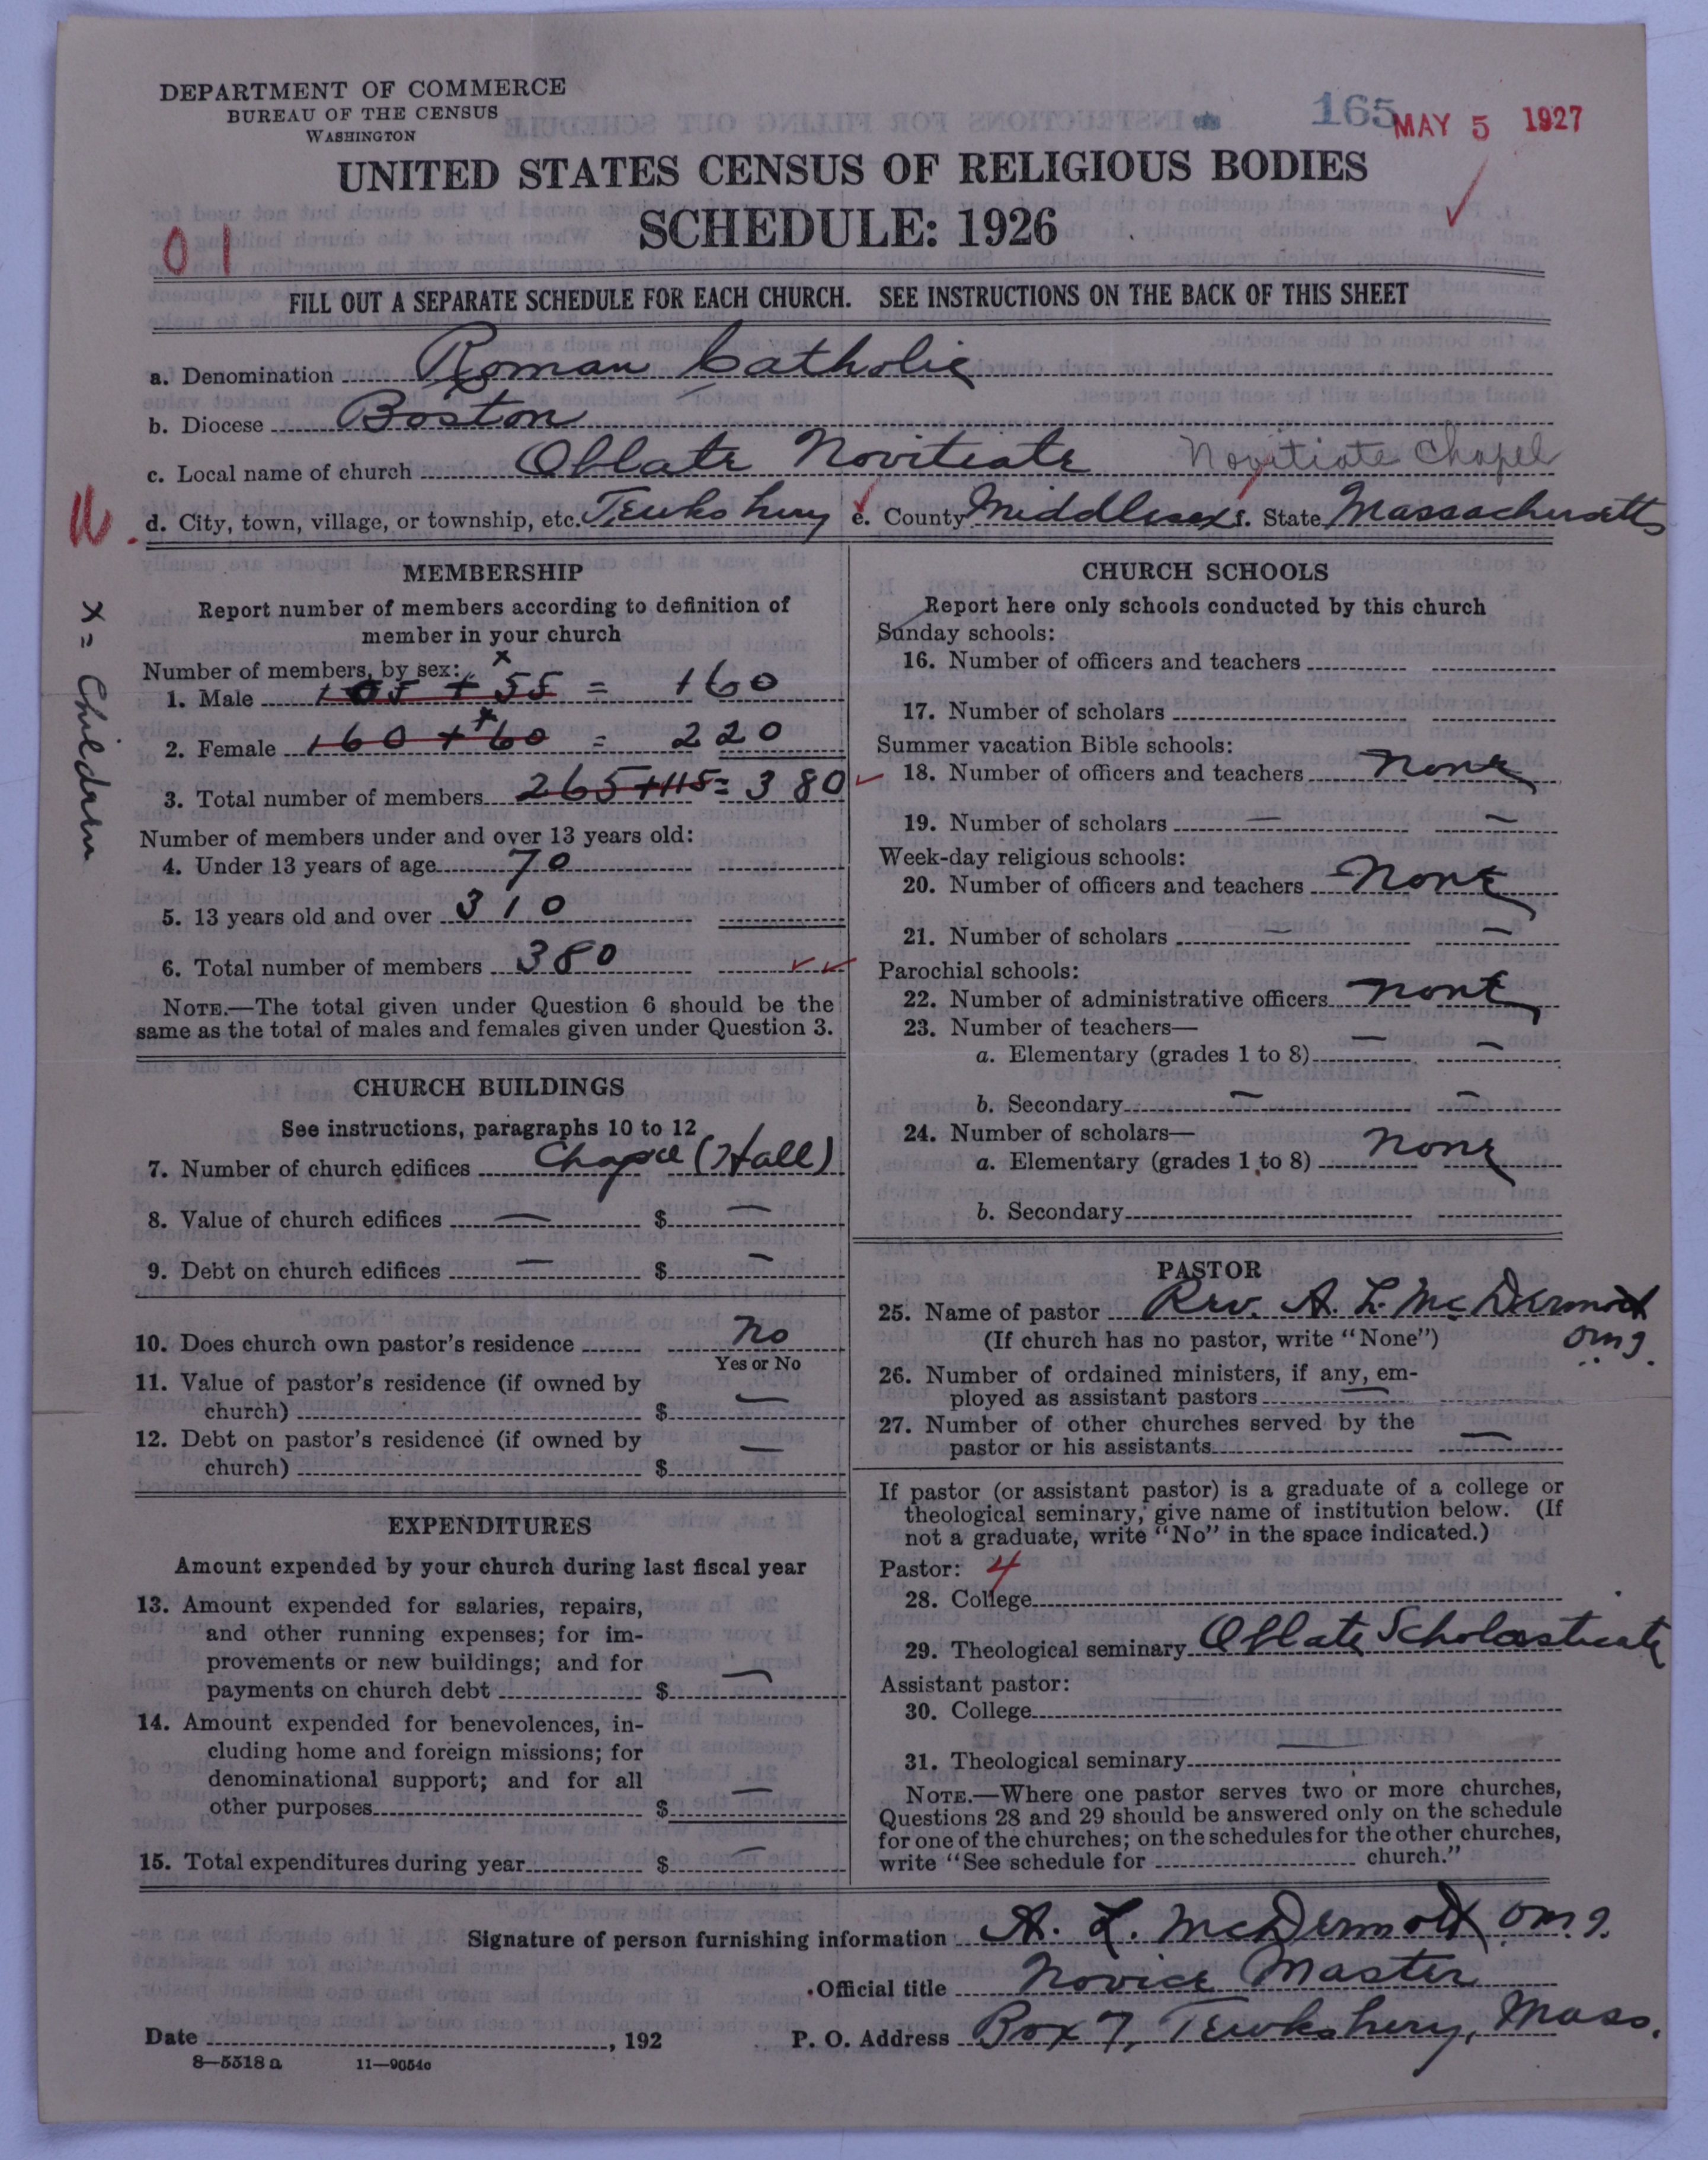 DEPARTMENT OF COMMERCE
BUREAU OF THE CENSUS
WASHINGTON
165
MAY 5 1927
UNITED STATES CENSUS OF RELIGIOUS BODIES
SCHEDULE: 1926
01
FILL OUT A SEPARATE SCHEDULE FOR EACH CHURCH. SEE INSTRUCTIONS ON THE BACK OF THIS SHEET
a. Denomination Roman Catholic
b. Diocese Boston
c. Local name of church Oblate Novitiate Novitiate Chapel
d. City, town, village, or township, etc. Tewksbury e. County Middlesex f. State Massachusetts
x = Children
MEMBERSHIP
Report number of members according to definition of
member in your church
Number of members, by sex: x
1. Male 105 + 55 = 160
2. Female 160 + 60 = 220
3. Total number of members 265+115= 380
Number of members under and over 13 years old:
4. Under 13 years of age 70
5. 13 years old and over 310
6. Total number of members 380
NOTE.—The total given under Question 6 should be the
same as the total of males and females given under Question 3.
CHURCH BUILDINGS
See instructions, paragraphs 10 to 12
7. Number of church edifices Chapel (Hall)
8. Value of church edifices — $ —
9. Debt on church edifices — $ —
10. Does church own pastor's residence No
Yes or No
11. Value of pastor's residence (if owned by
church) $ —
12. Debt on pastor's residence (if owned by
church) $ —
EXPENDITURES
Amount expended by your church during last fiscal year
13. Amount expended for salaries, repairs,
and other running expenses; for im-
provements or new buildings; and for
payments on church debt $ —
14. Amount expended for benevolences, in-
cluding home and foreign missions; for
denominational support; and for all
other purposes $ —
15. Total expenditures during year $ —
CHURCH SCHOOLS
Report here only schools conducted by this church
Sunday schools:
16. Number of officers and teachers
17. Number of scholars
Summer vacation Bible schools:
18. Number of officers and teachers None
19. Number of scholars — —
Week-day religious schools:
20. Number of officers and teachers None
21. Number of scholars — —
Parochial schools:
22. Number of administrative officers None
23. Number of teachers—
a. Elementary (grades 1 to 8) — —
b. Secondary — —
24. Number of scholars—
a. Elementary (grades 1 to 8) None
b. Secondary
PASTOR
25. Name of pastor Rev. A. L. McDermott
(If church has no pastor, write "None") O.M.I.
26. Number of ordained ministers, if any, em-
ployed as assistant pastors —
27. Number of other churches served by the
pastor or his assistants —
If pastor (or assistant pastor) is a graduate of a college or
theological seminary, give name of institution below. (If
not a graduate, write "No" in the space indicated.)
Pastor: 4
28. College
29. Theological seminary Oblate Scholasticate
Assistant pastor:
30. College
31. Theological seminary —
NOTE.—Where one pastor serves two or more churches,
Questions 28 and 29 should be answered only on the schedule
for one of the churches; on the schedules for the other churches,
write "See schedule for church."
Signature of person furnishing information A. L. McDermott O.M.I.
Official title Novice Master
Date , 192 P. O. Address Box 7, Tewksbury, Mass.
8—5518 a 11—9054c